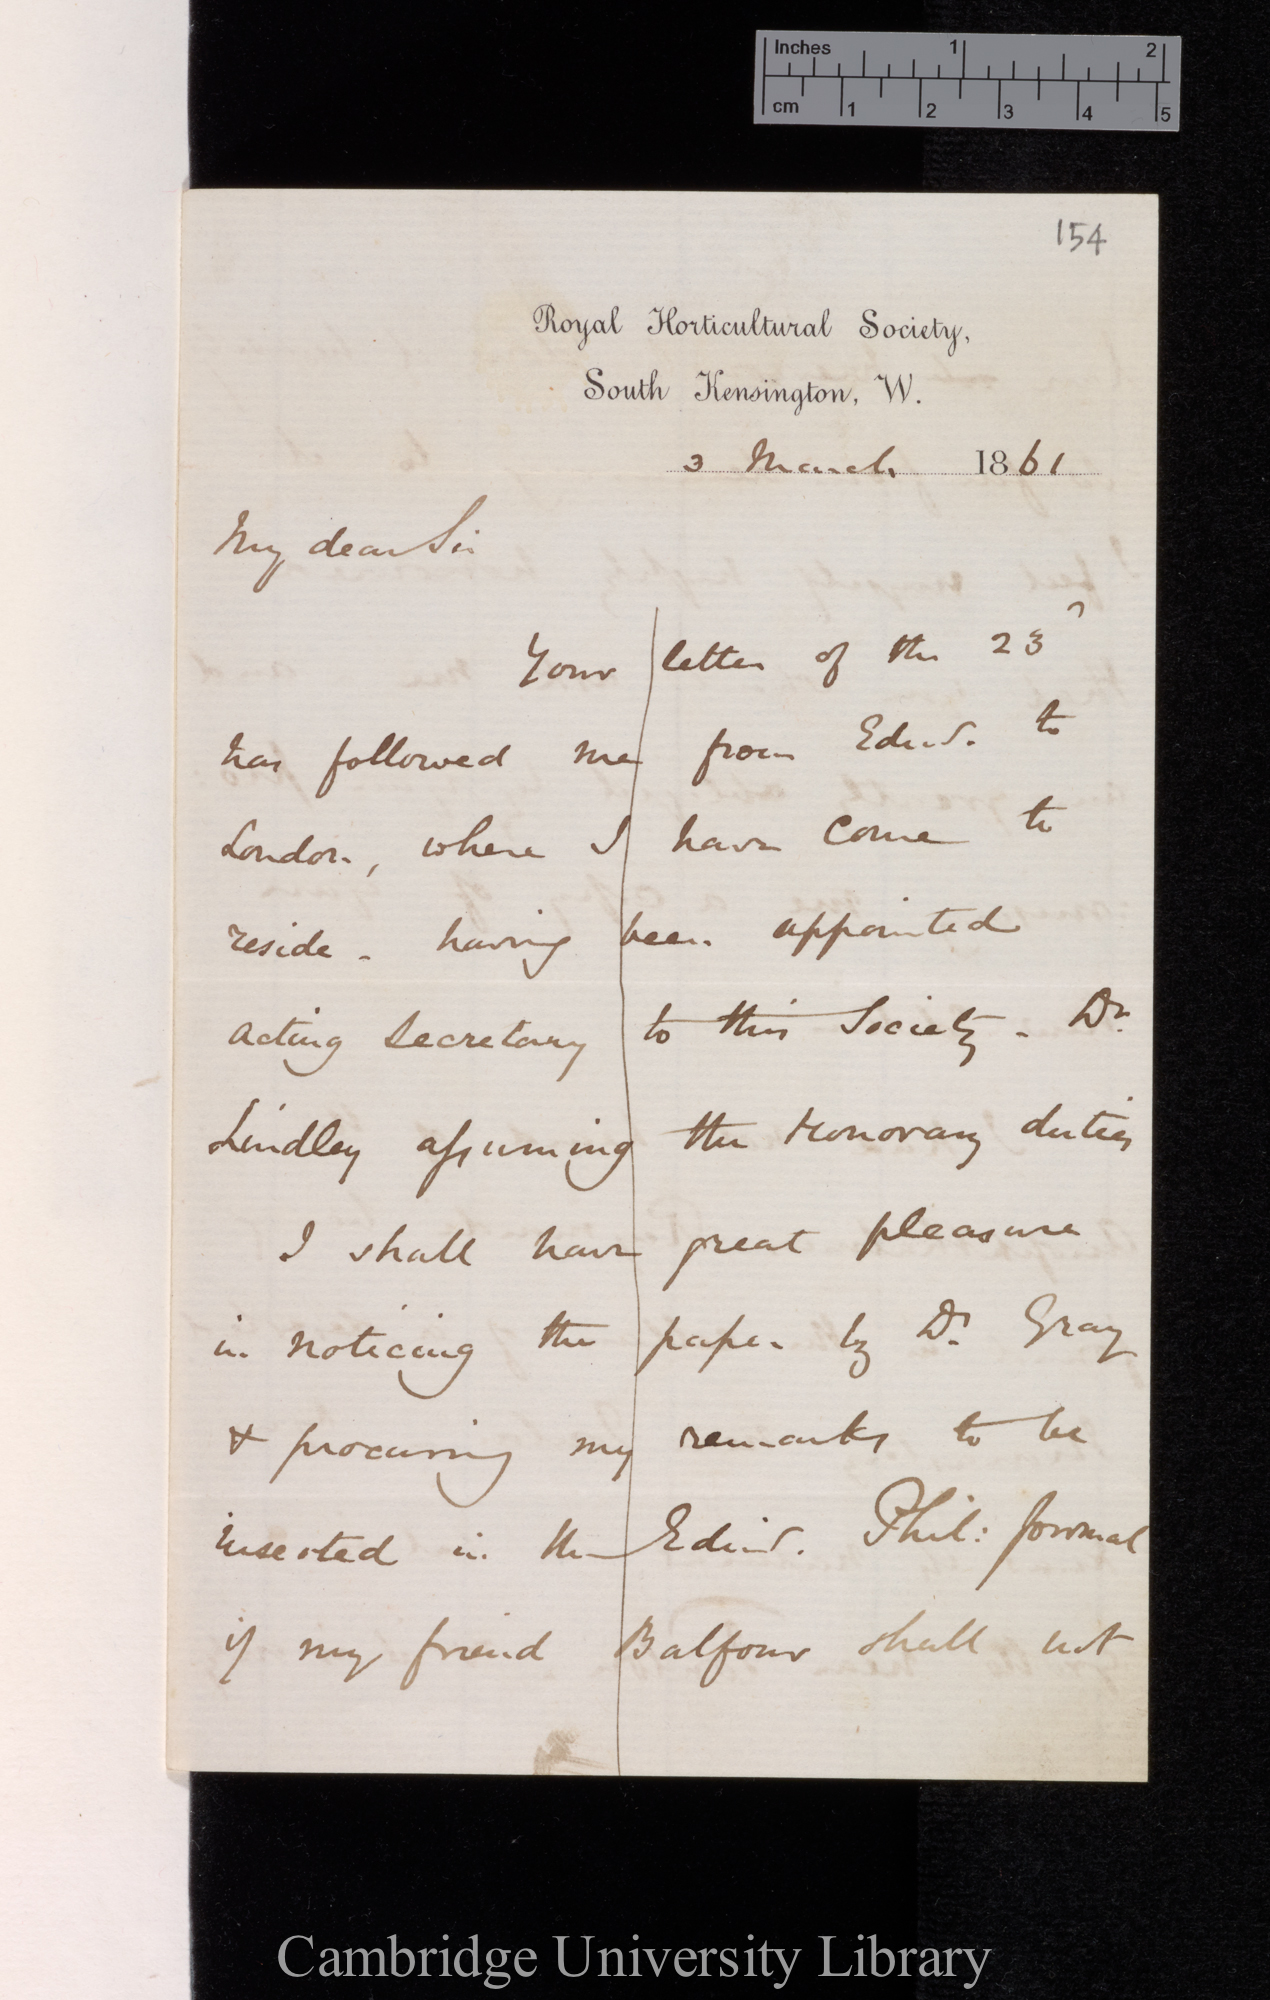 Inches 1 2
cm 1 2 3 4 5
154
Royal Horticultural Society,
South Kensington, W.
3 March 1861
My dear Sir
Your letter of the 23
has followed me from Edinb. to
London, where I have come to
reside - having been appointed
acting Secretary to this Society - Dr.
Lindley assuming the Honorary duties
I shall have great pleasure
in noticing the paper by Dr. Gray
& procuring my remarks to be
inserted in the Edinb. Phil: Journal
if my friend Balfour shall not
Cambridge University Library